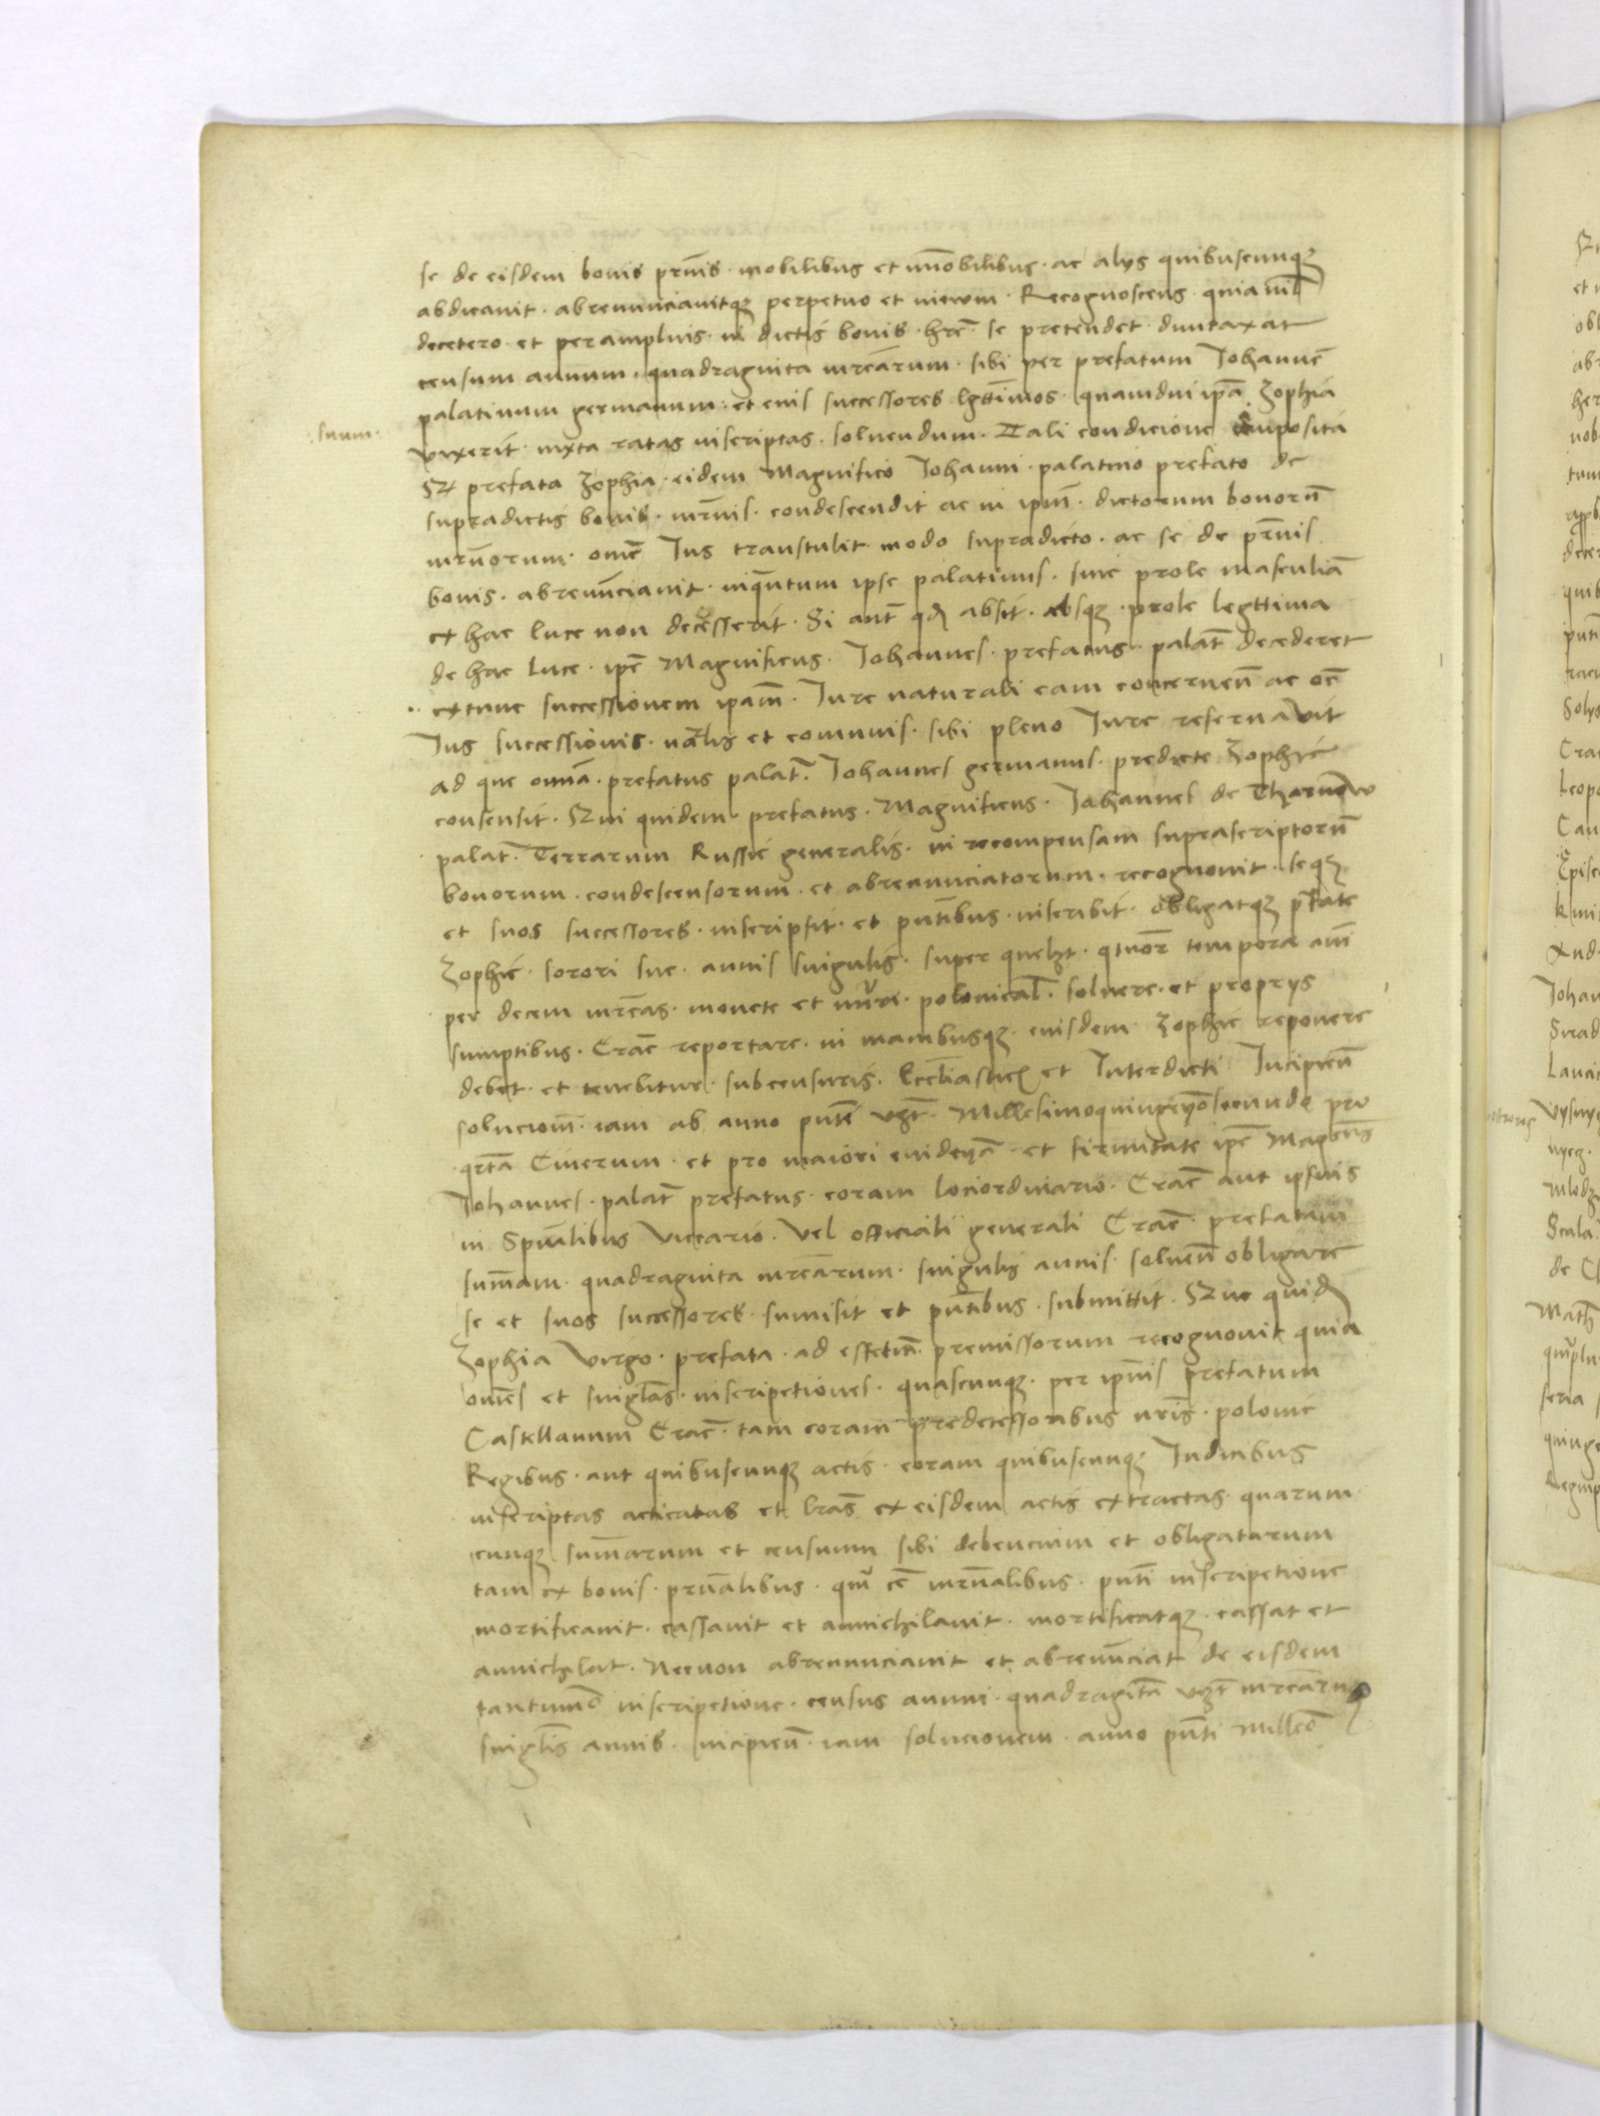 se de eisdem bonis pr̄nis · mobilibus et im̄obilibus · ac alys quibuscunqꝫ
abdicavit · abrenunciavitqꝫ perpetuo et in ewm · Recognoscens · quia nil̄
decetero · et per amplius · in dictis bonis · hr̄e · se pretendet · duntaxat
censum annuum · quadraginta mrcārum · sibi per prefatum Johannē
palatinum germanum · et eius successores lgttīmos · quamdiu ip̄a Zophia
suum ·
vixerit · iuxta ratas inscriptas · soluendum · Tali condicione imposita
Qꝫ prefata Zophia · eidem Magnifico Johanni · palatino prefato de
supradictis bonis · mr̄nis · condescendit ac in ip̄m̄ · dictorum bonorū
mr̄norum · om̄e Jus transtulit modo supradicto · ac se de pr̄nis
bonis · abrenūnciavit · inqūntum ipse palatinus · sine prole masculiā
ex hac luce non decesserit · Si aut̄ qꝺ absit · absqꝫ · prole legttima
de hac luce · ip̄e Magnificus · Johannes · prefatus · palat̄ decederet
extunc successionem ipam̄ · Jure naturali eam concernen̄ ac oē
Jus successionis · nāl̄is et com̄unis · sibi pleno Jure reservavit
ad que omnā · prefatus palat̄ · Johannes germanus · predicte Zophie
consensit · Qui quidem prefatus · Magnificus · Johannes de Tharnow
palat̄ · Terrarum Russie generalis · in recompensam suprascriptorū
bonorum · condescensorum · et abrenunciatorum · recognovit · seqꝫ
et suos successores · inscripsit · et pn̄tibus · inscribit · obligatqꝫ pr̄fate
Zophie · sorori sue · annis singulis · super quelzt · qtuor̄ tempora anī
per decem mrcas · monete et nu͛i · polonical̄ · solvere · et proprys
sumptibus · Crac̄ reportare · in manibusqꝫ · eiusdem Zophie reponere
debet · et tenebitur · sub censuris · Eccl̄iasticꝭ et Interdicti Incipien̄
solucionē · iam ab anno pn̄te vꝫt̄ · Millesimoquingeñosecundo pro
qrtā Cinerum · et pro maiori evidenā · et firmitate ip̄e Mag͛cus
Johannes · palat̄ prefatus · coram lociordinario · Crac̄ aut ipsius
in Spūalibus Vicario · Vel officiali generali Crac̄ · prefatam
sum̄am · quadraginta mrcārum · singulis annis · solven̄ obligare
se et suos successores · sumisit et pn̄tibus · submittit · Que quidꝫ
Zophia virgo · prefata · ad effectū premissorum recognovit quia
om̄es et sing͛las · inscripetiones · quascunqꝫ · per ip̄nis prefatum
Castellanum Crac̄ · tam coram predecessoribus nr̄is · polonie
Regibus · aut quibuscunqꝫ actis · coram quibuscunqꝫ Judicibus
inscriptas acticatas et lr̄as ex eisdem actis extractas · quarum
cunqꝫ sum̄arum et censuum sibi debencium et obligatarum
tam ex bonis · pr̄nalibus · qm̄ eē mr̄nalibus · pn̄ti inscripetione
mortificavit · cassavit et annichilavit · mortificatqꝫ · cassat et
annichilat · Necnon abrenunciavit et abrenūnciat de eisdem
tantum̄o inscripetione · census annui · quadragītā vꝫt̄ mrcārū
singlīs annis · incipien̄ · iam solucionem · anno pn̄ti Mill͛mo